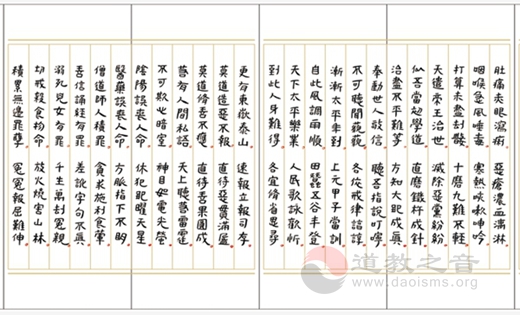 肚痛赤眼瀉痢 惡瘡濃血淋漓
咽喉急風唾毒 寒熱咳嗽呻吟
打算未盡刮髓 十磨九難不輕
天遣帝王治世 滅除惡黨紛紛
似吾當初學道 直磨鐵杵成針
治盡不平難等 方知大聖成真
奉勸世人敬信 聽吾指說叮嚀
不可聽聞藐藐 各依戒律諄諄
漸漸太平來到 上元甲子當訓
自此風調雨順 田蠶五谷丰登
天下太平樂業 人民歌詠歡忻
到此人身難得 各宜脩省是尋
更有東嶽泰山 速報立報司存
莫道造惡不報 直待惡貫滿盈
莫道脩善不應 直待善果圓成
有人間私語 天上聽聞雷霆
不可欺心暗室 神目如電光榮
陰陽誤喪人命 休犯曜天星
醫藥誤喪人命 方脈指下不明
僧道師人積罪 貪求施利食葷
吾信誦經有罪 差說字句不真
溺死兒女有罪 千生萬劫冤親
劫戒殺食物命 放火燒害山林
積累無邊罪孽 冤冤報屈難伸
道教之音
www.daoisms.org